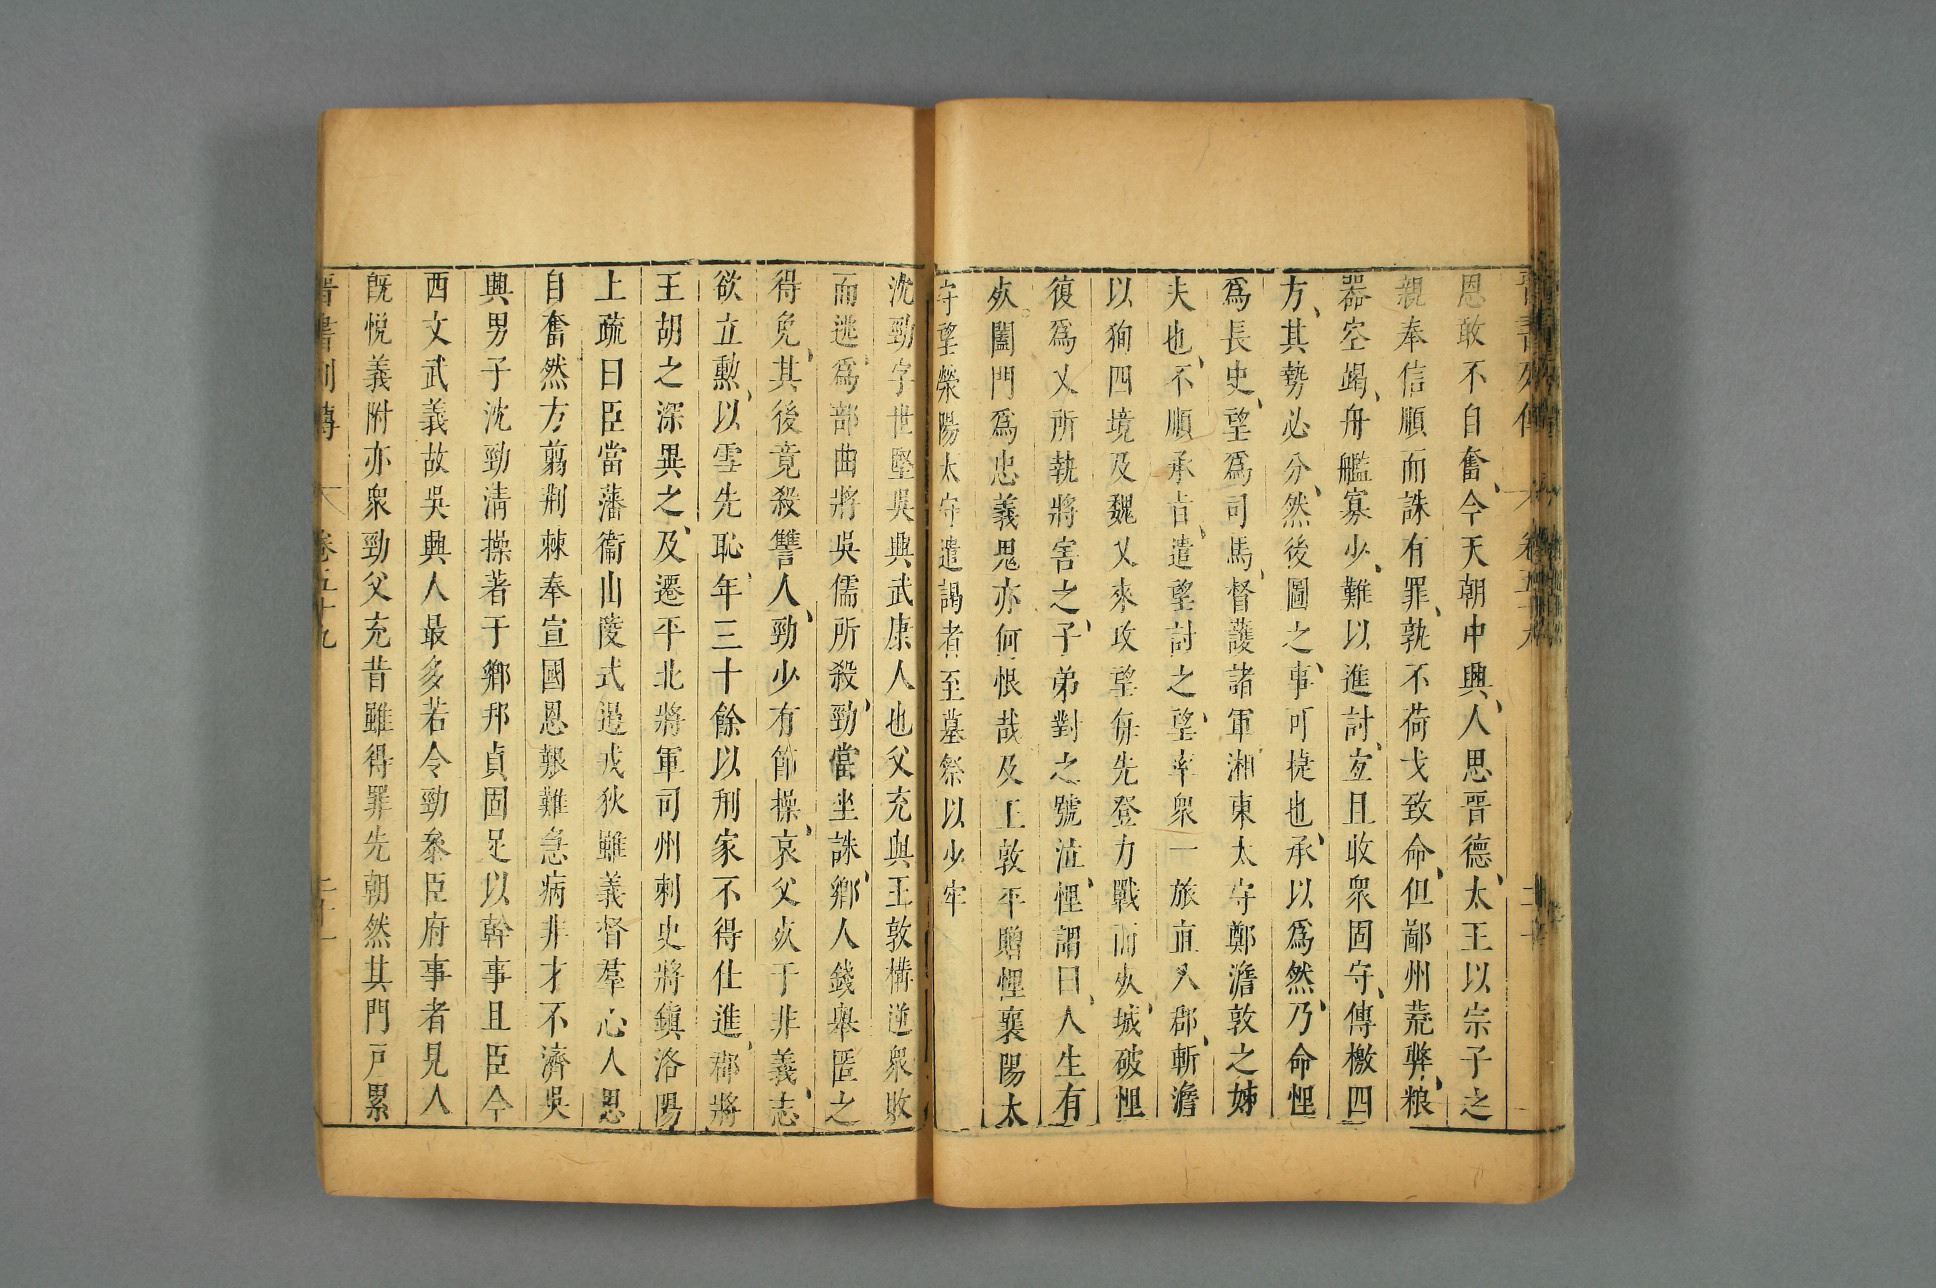 恩敢不自奮今天朝中興人思晉德太王以宗子之
親奉信順而誅有罪孰不荷戈致命但鄙州荒弊粮
器空竭舟艦寡少難以進討宜且收衆固守傳檄四
方其勢必分然後圖之事可捷也承以爲然乃命悝
爲長史望爲司馬督護諸軍湘東太守鄭澹敦之姊
夫也不順承旨遣望討之望率衆一旅直入郡斬澹
以狥四境及魏乂來攻望每先登力戰而死城破悝
復爲乂所執將害之子弟對之號泣悝謂曰人生有
死闔門爲忠義鬼亦何恨哉及王敦平贈悝襄陽太
守望滎陽太守遣謁者至墓祭以少牢
沈勁字世堅吳興武康人也父充與王敦構逆衆敗
而逃爲部曲將吳儒所殺勁當坐誅鄉人錢舉匿之
得免其後竟殺讐人勁少有節操哀父死于非義志
欲立勲以雪先恥年三十餘以刑家不得仕進郡將
王胡之深異之及遷平北將軍司州刺史將鎭洛陽
上疏曰臣當藩衞山陵式遏戎狄雖義督羣心人思
自奮然方翦荆棘奉宣國恩艱難急病非才不濟吳
興男子沈勁淸操著于鄉邦貞固足以幹事且臣今
西文武義故吳興人最多若令勁叅臣府事者見人
旣悦義附亦衆勁父充昔雖得罪先朝然其門戸累
晉書列傳 卷五十九